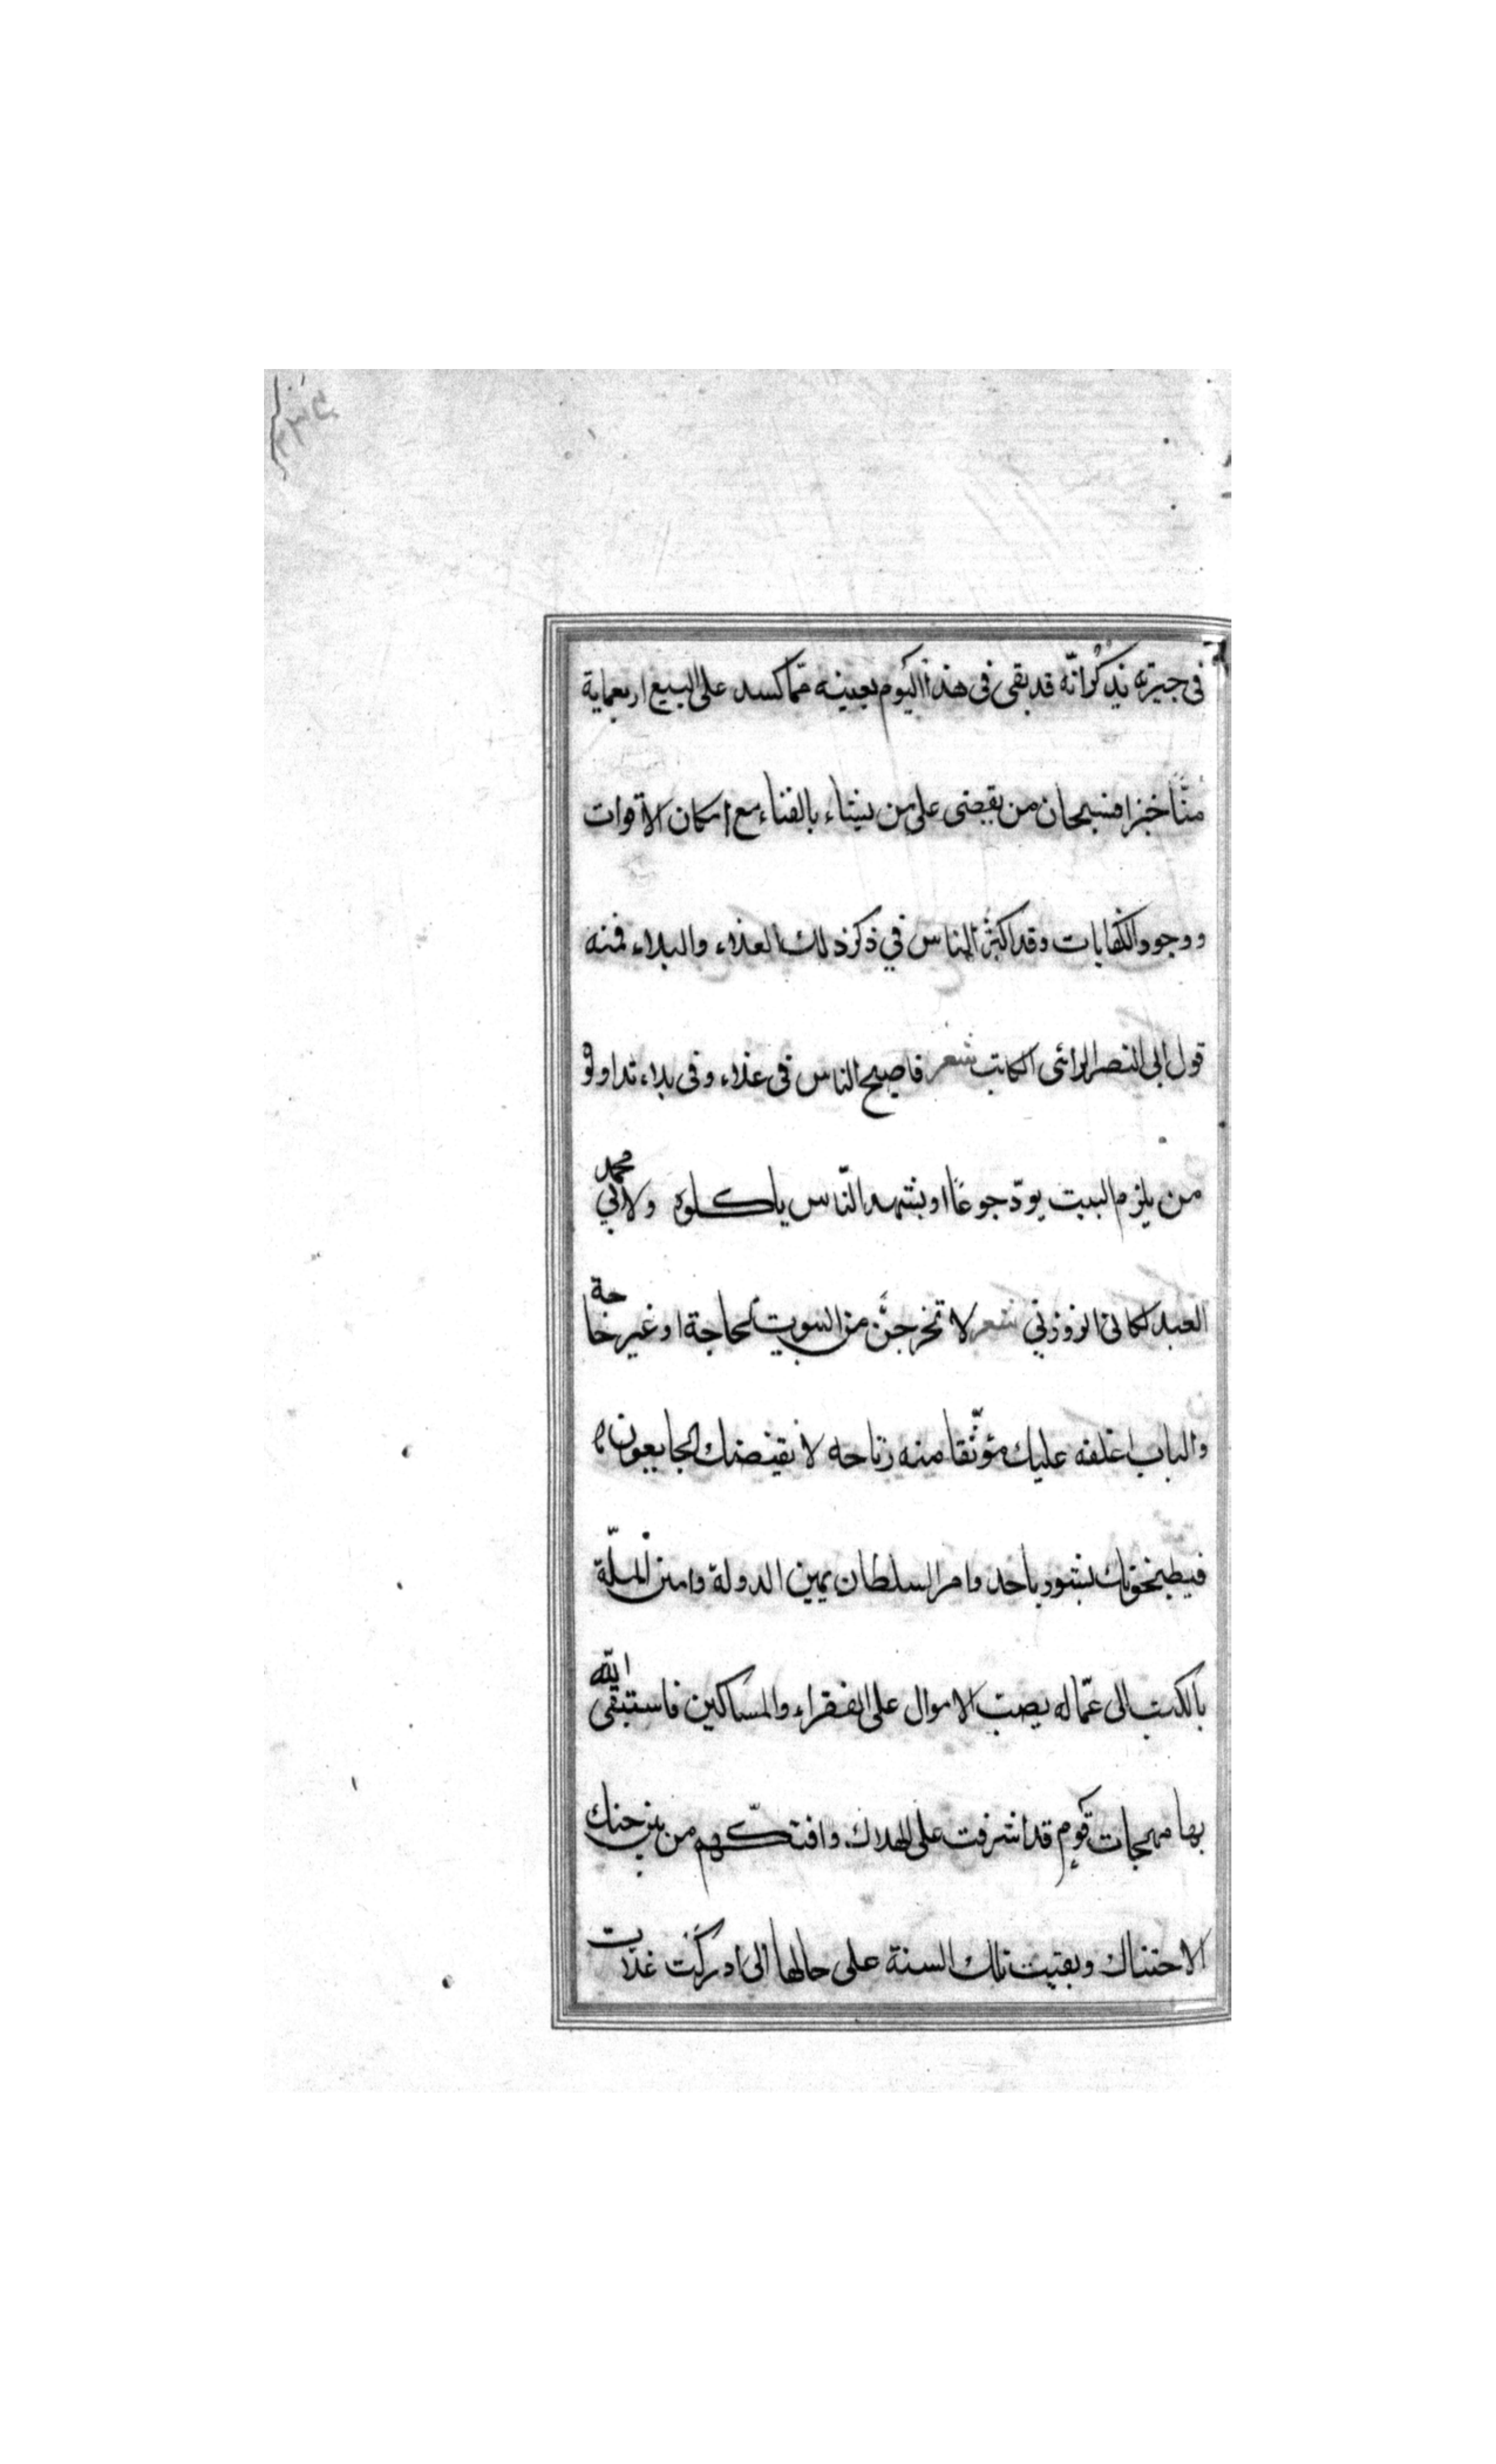 في جيرته يذكر انّه قد بقى فى هذا اليوم بعينه ممّا كسد على البيع اربعماية
منّا خبزا فسبحان من يقضى على من يشاء بالفناء مع امكان الاقوات
ووجود الكفايات وقد اكثر الناس في ذكر ذلك الغلاء والبلاء فمنه
قول ابى النصر الرائى الكاتب شعر قد اصبح الناس فى غلاء وفى بلاء تداولوه
من يلزم البيت يودّ جوعًا او يشهد النّاس ياكلوه ولابي محمد
العبد لكانى الزوزني شعر لا تخرجنّ من البيوت لحاجة او غير حاجة
والباب اغلقه عليك موثّقا منه رتاجه لا يقنصنك الجايعون
فيطبخونك بشورباجه وامر السلطان يمين الدولة وامين الملّة
بالكتب الى عمّاله بصبّ الاموال على الفقراء والمساكين فاستبقى الله
بها مهجات قوم قد اشرفت على الهلاك وافتكّهم من بين حنك
الاحتناك وبقيت تلك السنة على حالها الى ادركت غلات